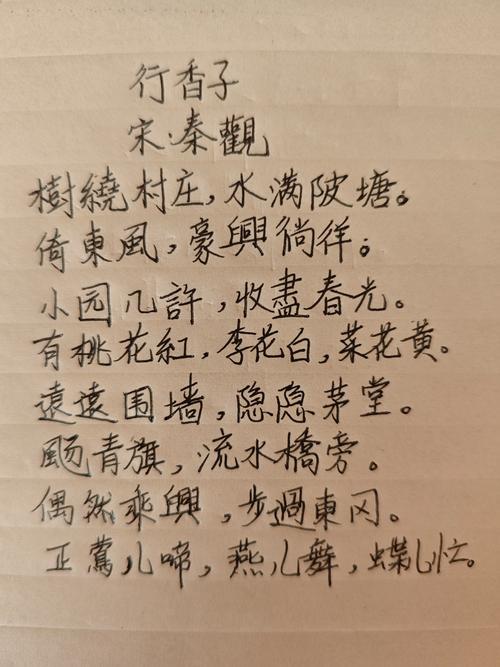 行香子
宋·秦觀
樹繞村庄，水满陂塘。
倚東風，豪興徜徉。
小园几許，收盡春光。
有桃花紅，李花白，菜花黄。
遠遠围墙，隐隐茅堂。
颺青旗，流水橋旁。
偶然乘興，步過東冈。
正鶯儿啼，燕儿舞，蝶儿忙。